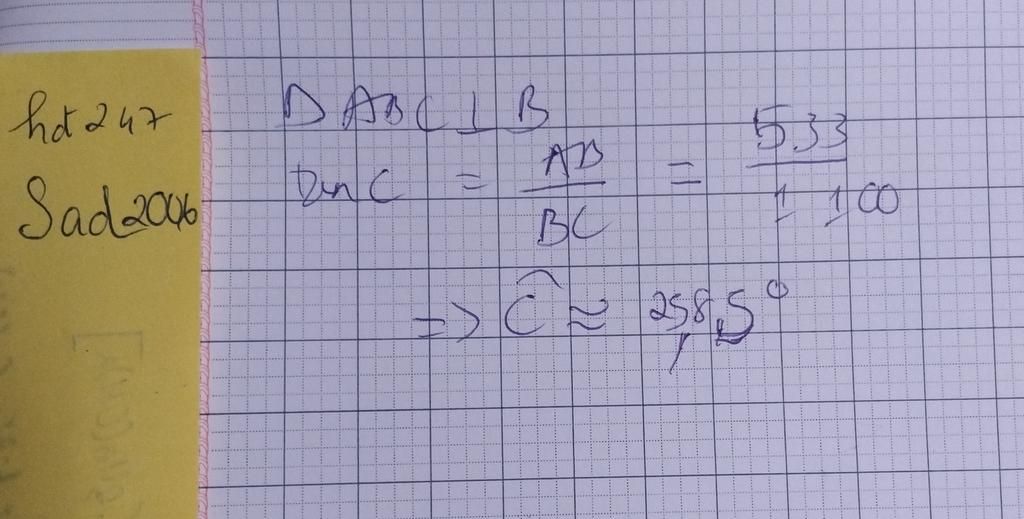 hdt247
Sad2006
Δ ABC ⊥ B
tan C = AB / BC = 533 / 1 100
=> Ĉ ≈ 25,8,5°